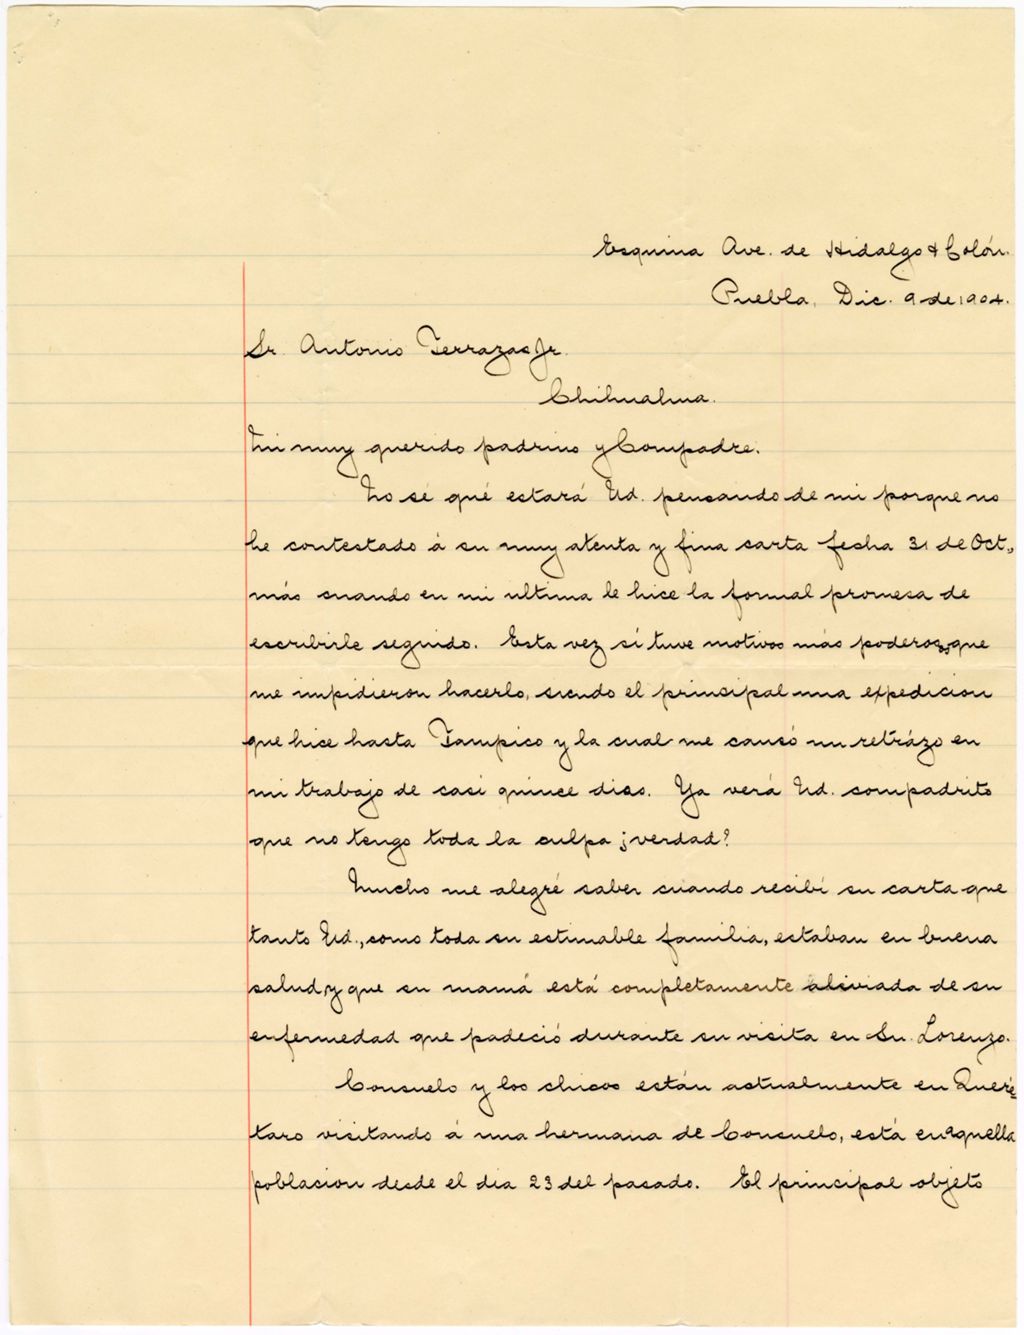 Esquina Ave. de Hidalgo & Colón.
Puebla, Dic. 9 de 1904.
Sr. Antonio Terrazas Jr.
Chihuahua.
Mi muy querido padrino y Compadre.
No sé qué estará Ud. pensando de mi porque no
he contestado á su muy atenta y fina carta fecha 31 de Oct.,
más cuando en mi ultima le hice la formal promesa de
escribirle seguido. Esta vez sí tuve motivos más poderosos que
me impidieron hacerlo, siendo el principal una expedicion
que hice hasta Tampico y la cual me causó un retrázo en
mi trabajo de casi quince dias. Ya verá Ud. compadrito
que no tengo toda la culpa ¿verdad?
Mucho me alegré saber cuando recibí su carta que
tanto Ud., como toda su estimable familia, estaban en buena
salud, y que su mamá está completamente aliviada de su
enfermedad que padeció durante su visita en Sn. Lorenzo.
Consuelo y los chicos están actualmente en Queré-
taro visitando á una hermana de Consuelo, está en aquella
poblacion desde el dia 23 del pasado. El principal objeto